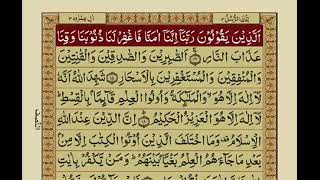 تِلۡكَ الرُّسُلُ ٣
اٰلِ عِمۡرٰن ٣
اَلَّذِيۡنَ يَقُوۡلُوۡنَ رَبَّنَاۤ اِنَّنَاۤ اٰمَنَّا فَاغۡفِرۡ لَنَا ذُنُوۡبَنَا وَقِنَا
عَذَابَ النَّارِ اَلصّٰبِرِيۡنَ وَالصّٰدِقِيۡنَ وَالۡقٰنِتِيۡنَ
وَالۡمُنۡفِقِيۡنَ وَالۡمُسۡتَغۡفِرِيۡنَ بِالۡاَسۡحَارِ شَهِدَ اللّٰهُ اَنَّهٗ
لَاۤ اِلٰهَ اِلَّا هُوَ وَالۡمَلٰٓئِكَةُ وَاُولُوا الۡعِلۡمِ قَآئِمًۢا بِالۡقِسۡطِ
لَاۤ اِلٰهَ اِلَّا هُوَ الۡعَزِيۡزُ الۡحَكِيۡمُ اِنَّ الدِّيۡنَ عِنۡدَ اللّٰهِ
الۡاِسۡلَامُ وَمَا اخۡتَلَفَ الَّذِيۡنَ اُوۡتُوا الۡكِتٰبَ اِلَّا مِنۡۢ
بَعۡدِ مَا جَآءَهُمُ الۡعِلۡمُ بَغۡيًۢا بَيۡنَهُمۡ وَمَنۡ يَّكۡفُرۡ بِاٰيٰتِ